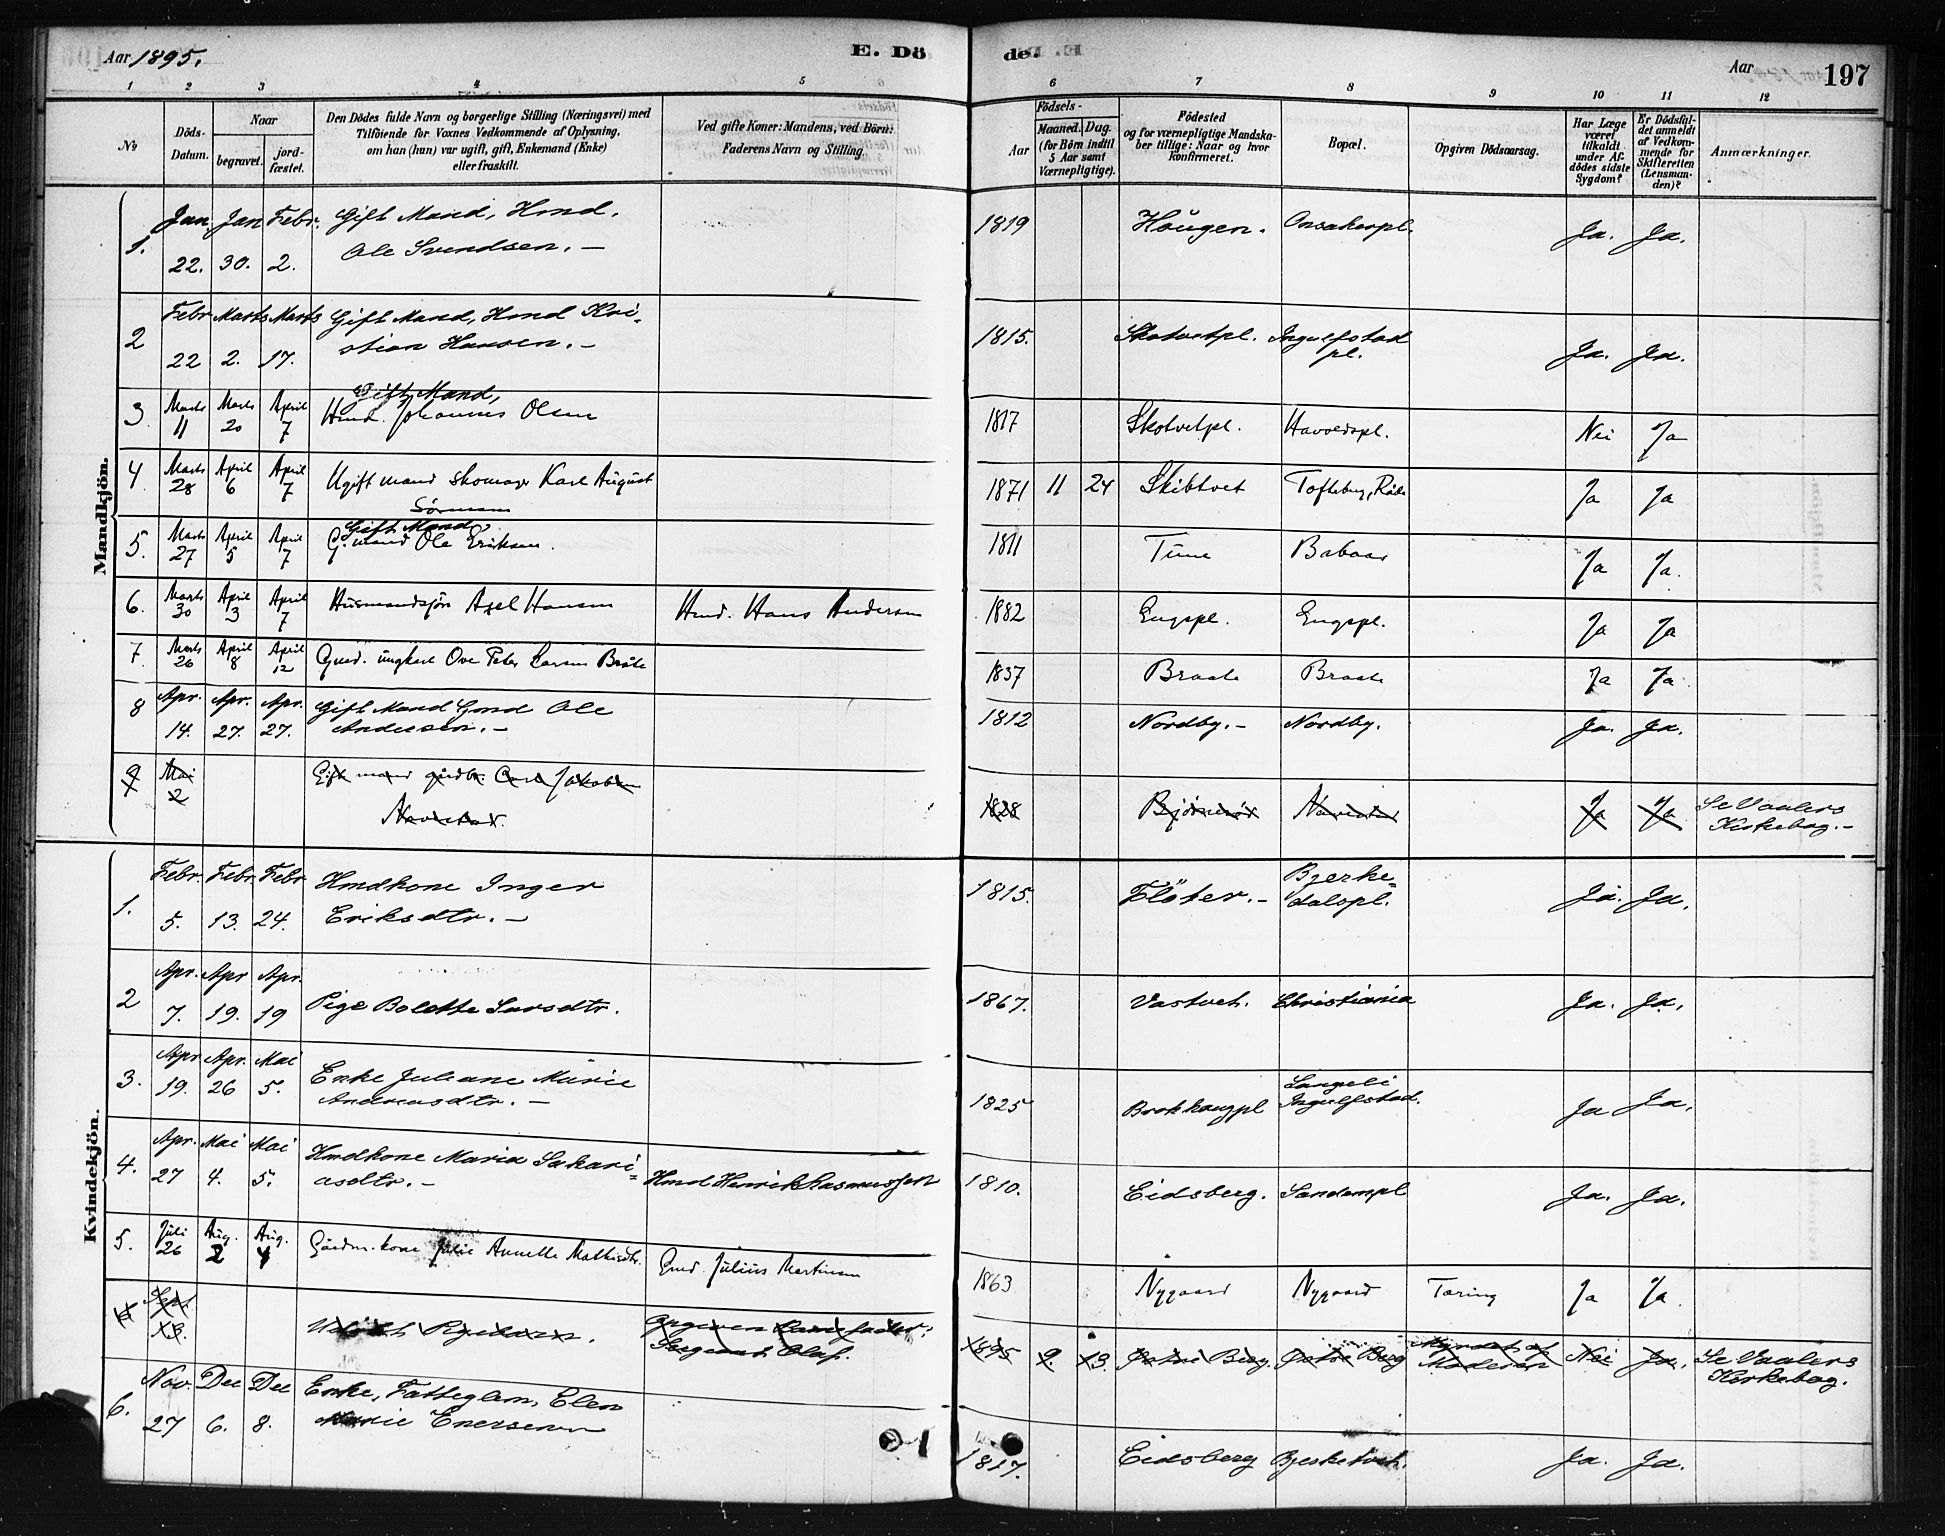 Aar 1895.
E. Dö
de.
Aar
197
1 2 3 4 5 6 7 8 9 10 11 12
No
Döds-Datum.
Naar
begravet.
jord-fæstet.
Den Dödes fulde Navn og borgerlige Stilling (Næringsvei) med
Tilföiende for Voxnes Vedkommende af Oplysning,
om han (hun) var ugift, gift, Enkemand (Enke)
eller fraskilt.
Ved gifte Koner: Mandens, ved Börn:
Faderens Navn og Stilling.
Födsels-
Aar
Maaned. Dag.
(for Börn indtil
5 Aar samt
Værnepligtige).
Födested
og for værnepligtige Mandska-
ber tillige: Naar og hvor
konfirmeret.
Bopæl.
Opgiven Dödsaarsag.
Har Læge
været
tilkaldt
under Af-
dödes sidste
Sygdom?
Er Dödsfal-
det anmeldt
af Vedkom-
mende for
Skifteretten
(Lensman-
den)?
Anmærkninger.
Mandkjön.
1. Jan. 22. Jan 30. Febr. 2. Gift Mand, Hmd.
Ole Svendsen. — 1819 Haugen. Onsakerpl. Ja. Ja.
2 Febr 22 Marts 2. Marts 17. Gift Mand, Hmd Kri-
stian Hansen. — 1815. Skotvetpl. Ingulfstad
pl. Ja. Ja.
Gift Mand,
3 Marts 11 Marts 20 April 7 Hmd. Johannes Olsen 1817 Skotvetpl. Havoldspl. Nei Ja
4 Marts 28 April 6 April 7 Ugift mand skomager Karl August
Sörensen 1871 11 24 Skibtvet Tofteberg, Råde Ja Ja
Gift Mand,
5. Marts 27 April 5 April 7 G.mand Ole Eriksen. 1811 Tune Baboar Ja Ja.
6. Marts 30 April 3 April 7 Husmandssön Axel Hansen Hmd. Hans Andersen 1882 Engspl. Engspl. Ja Ja
7. Marts 26 April 8 April 12 Gmd. ungkarl Ove Peter Larsen Bråte 1837 Braate Braate Ja Ja.
8 Apr. 14. Apr. 27. Apr. 27. Gift Mand Gmd Ole
Andersen. — 1812 Nordby. — Nordby. Ja. Ja.
9 Mai 2 Gift mand gårdbr. Carl Jakobsen
Navestad. 1828 Navestad Ja Ja Se Vaalers
Kirkebog. —
Kvindekjön.
1. Febr. 5. Febr 13. Febr 24. Hmdkone Inger
Eriksdtr. — 1815. Flöter. — Bjerke-
dalspl. Ja. Ja.
2 Apr. 7. Apr 19. Apr. 19 Pige Bolette Larsdtr. 1867. Vastvet. Christiania Ja. Ja.
3. Apr 19. Apr. 26 Mai 5. Enke Juliane Marie
Andreasdtr. — 1825 Brokhaugpl Langeli
Ingulfstad. Ja Ja.
4. Apr. 27 Mai 4. Mai 5. Hmdkone Maria Sakari-
asdtr. — Hmd Henrik Rasmussen 1810. Eidsberg. Sandempl Ja. Ja.
5. Juli 26 Aug. 2 Aug. 4 Gårdm. kone Julie Annette Mathisdtr. Gmd. Julius Martinsen 1863 Nygaard Nygaard Tæring Ja Ja.
6 Sept. 13. Udöbt Pigebarn. Opgiven Barnefader:
Sergeant Olaf. 1895 9. 13. Østre Berg. Østre Berg Myrdet af
Moderen Nei Ja. Se Vaalers
Kirkebog.
6. Nov. 27 Dec 6. Dec 8. Enke, Fattiglem, Elen
Marie Enersen 1817. Eidsberg Bjerketvet. Ja. Ja.